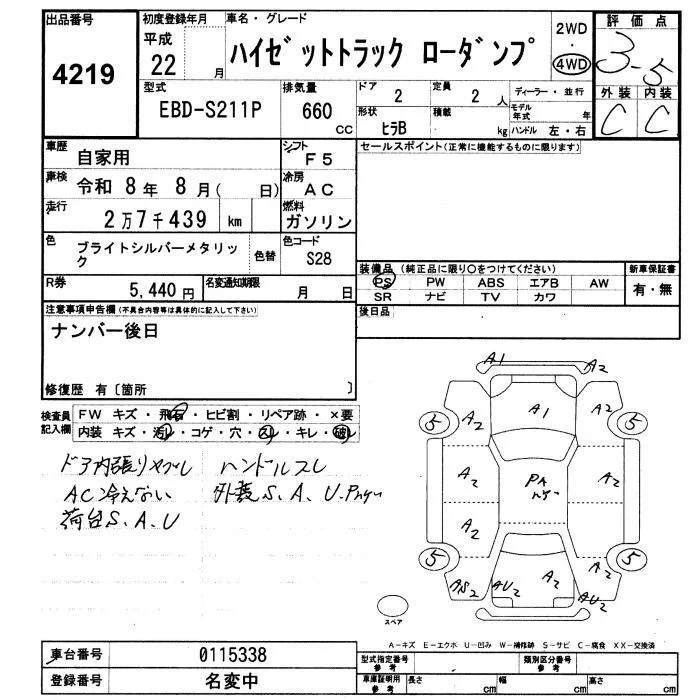 出品番号
4219
初度登録年月
平成
22 月
車名・グレード
ハイゼットトラック ローダンプ
2WD
・
4WD
評価点
3.5
外装 内装
C C
型式
EBD-S211P
排気量
660 cc
ドア
2
定員
2 人
形状
ヒラB
積載
kg
ディーラー・並行
モデル年式 年
ハンドル 左・右
車歴
自家用
シフト
F5
車検
令和 8年 8月( 日)
冷房
AC
走行
2万7千439 km
燃料
ガソリン
色
ブライトシルバーメタリッ
ク
色替
色コード
S28
R券
5,440円
名変通知期限
月 日
セールスポイント(正常に機能するものに限ります)
装備品 (純正品に限り○をつけてください)
PS PW ABS エアB AW
SR ナビ TV カワ
新車保証書
有・無
後日品
注意事項申告欄(不具合内容等は具体的に記入して下さい)
ナンバー後日
修復歴 有〔箇所 〕
検査員
記入欄
FW キズ・飛石・ヒビ割・リペア跡・×要
内装 キズ・汚レ・コゲ・穴・スレ・キレ・破レ
ドア内張りヤブレ ハンドルスレ
AC冷えない 外装S、A、U、
荷台S、A、U
A1 A2
5 A2 A1 A2 5
A2 PA A2
A2
5 A2 5
AS2 AU2 A2 AU2
スペア
A-キズ E-エクボ U-凹み W-補修跡 S-サビ C-腐食 XX-交換済
車台番号
0115338
登録番号
名変中
型式指定番号
参考
類別区分番号
参考
車庫証明用
参考
長さ cm
幅 cm
高さ cm